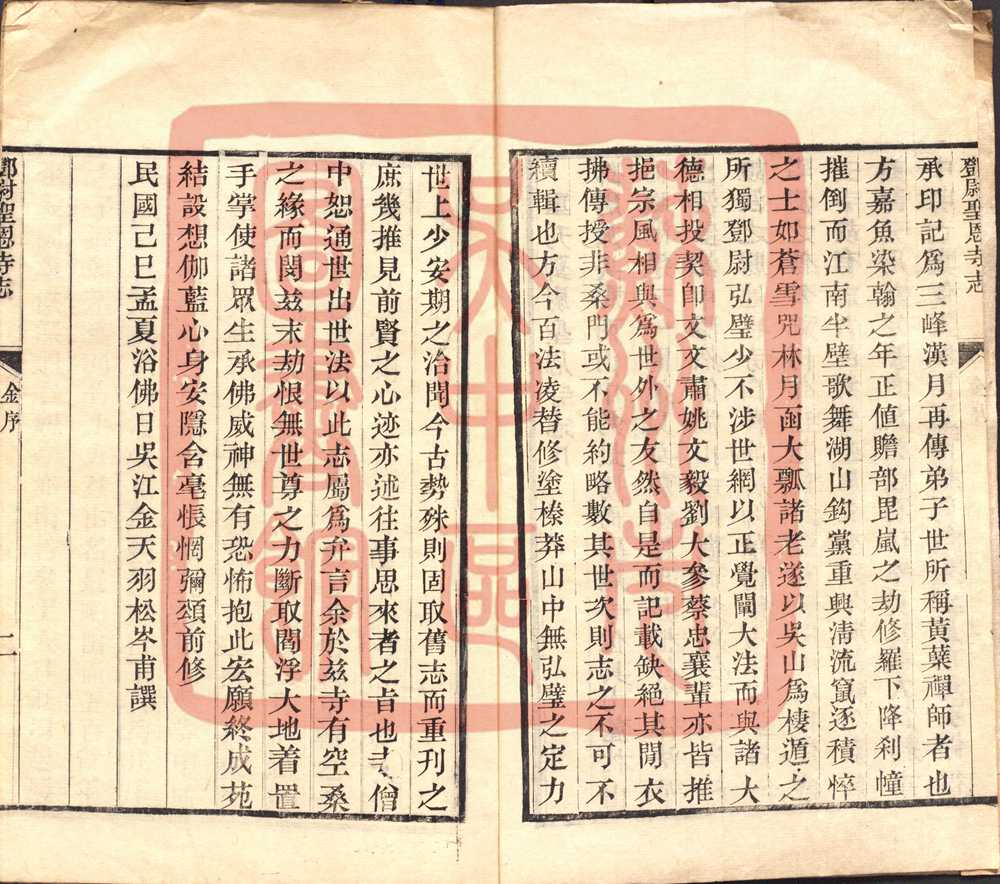 鄧尉聖恩寺志
承印記為三峰漢月再傳弟子世所稱黃葉禪師者也
方嘉魚染翰之年正值贍部毘嵐之劫修羅下降剎幢
摧倒而江南半壁歌舞湖山鈎黨重興淸流竄逐積悴
之士如蒼雪咒林月函大瓢諸老遂以吳山爲棲遁之
所獨鄧尉弘璧少不涉世網以正覺闡大法而與諸大
德相投契卽文文肅姚文毅劉大參蔡忠襄輩亦皆推
挹宗風相與爲世外之友然自是而記載缺絕其閒衣
拂傳授非桑門或不能約略數其世次則志之不可不
續輯也方今百法凌替修塗榛莽山中無弘璧之定力
世上少安期之治聞今古勢殊則固取舊志而重刊之
庶幾推見前賢之心迹亦述往事思來者之旨也寺僧
中恕通世出世法以此志屬爲弁言余於茲寺有空桑
之緣而閔茲末劫恨無世尊之力斷取閻浮大地着置
手掌使諸眾生承佛威神無有恐怖抱此宏願終成苑
結設想伽藍心身安隱含毫悵惘彌頌前修
民國己巳孟夏浴佛日吳江金天羽松岑甫譔
鄧尉聖恩寺志
金序
二